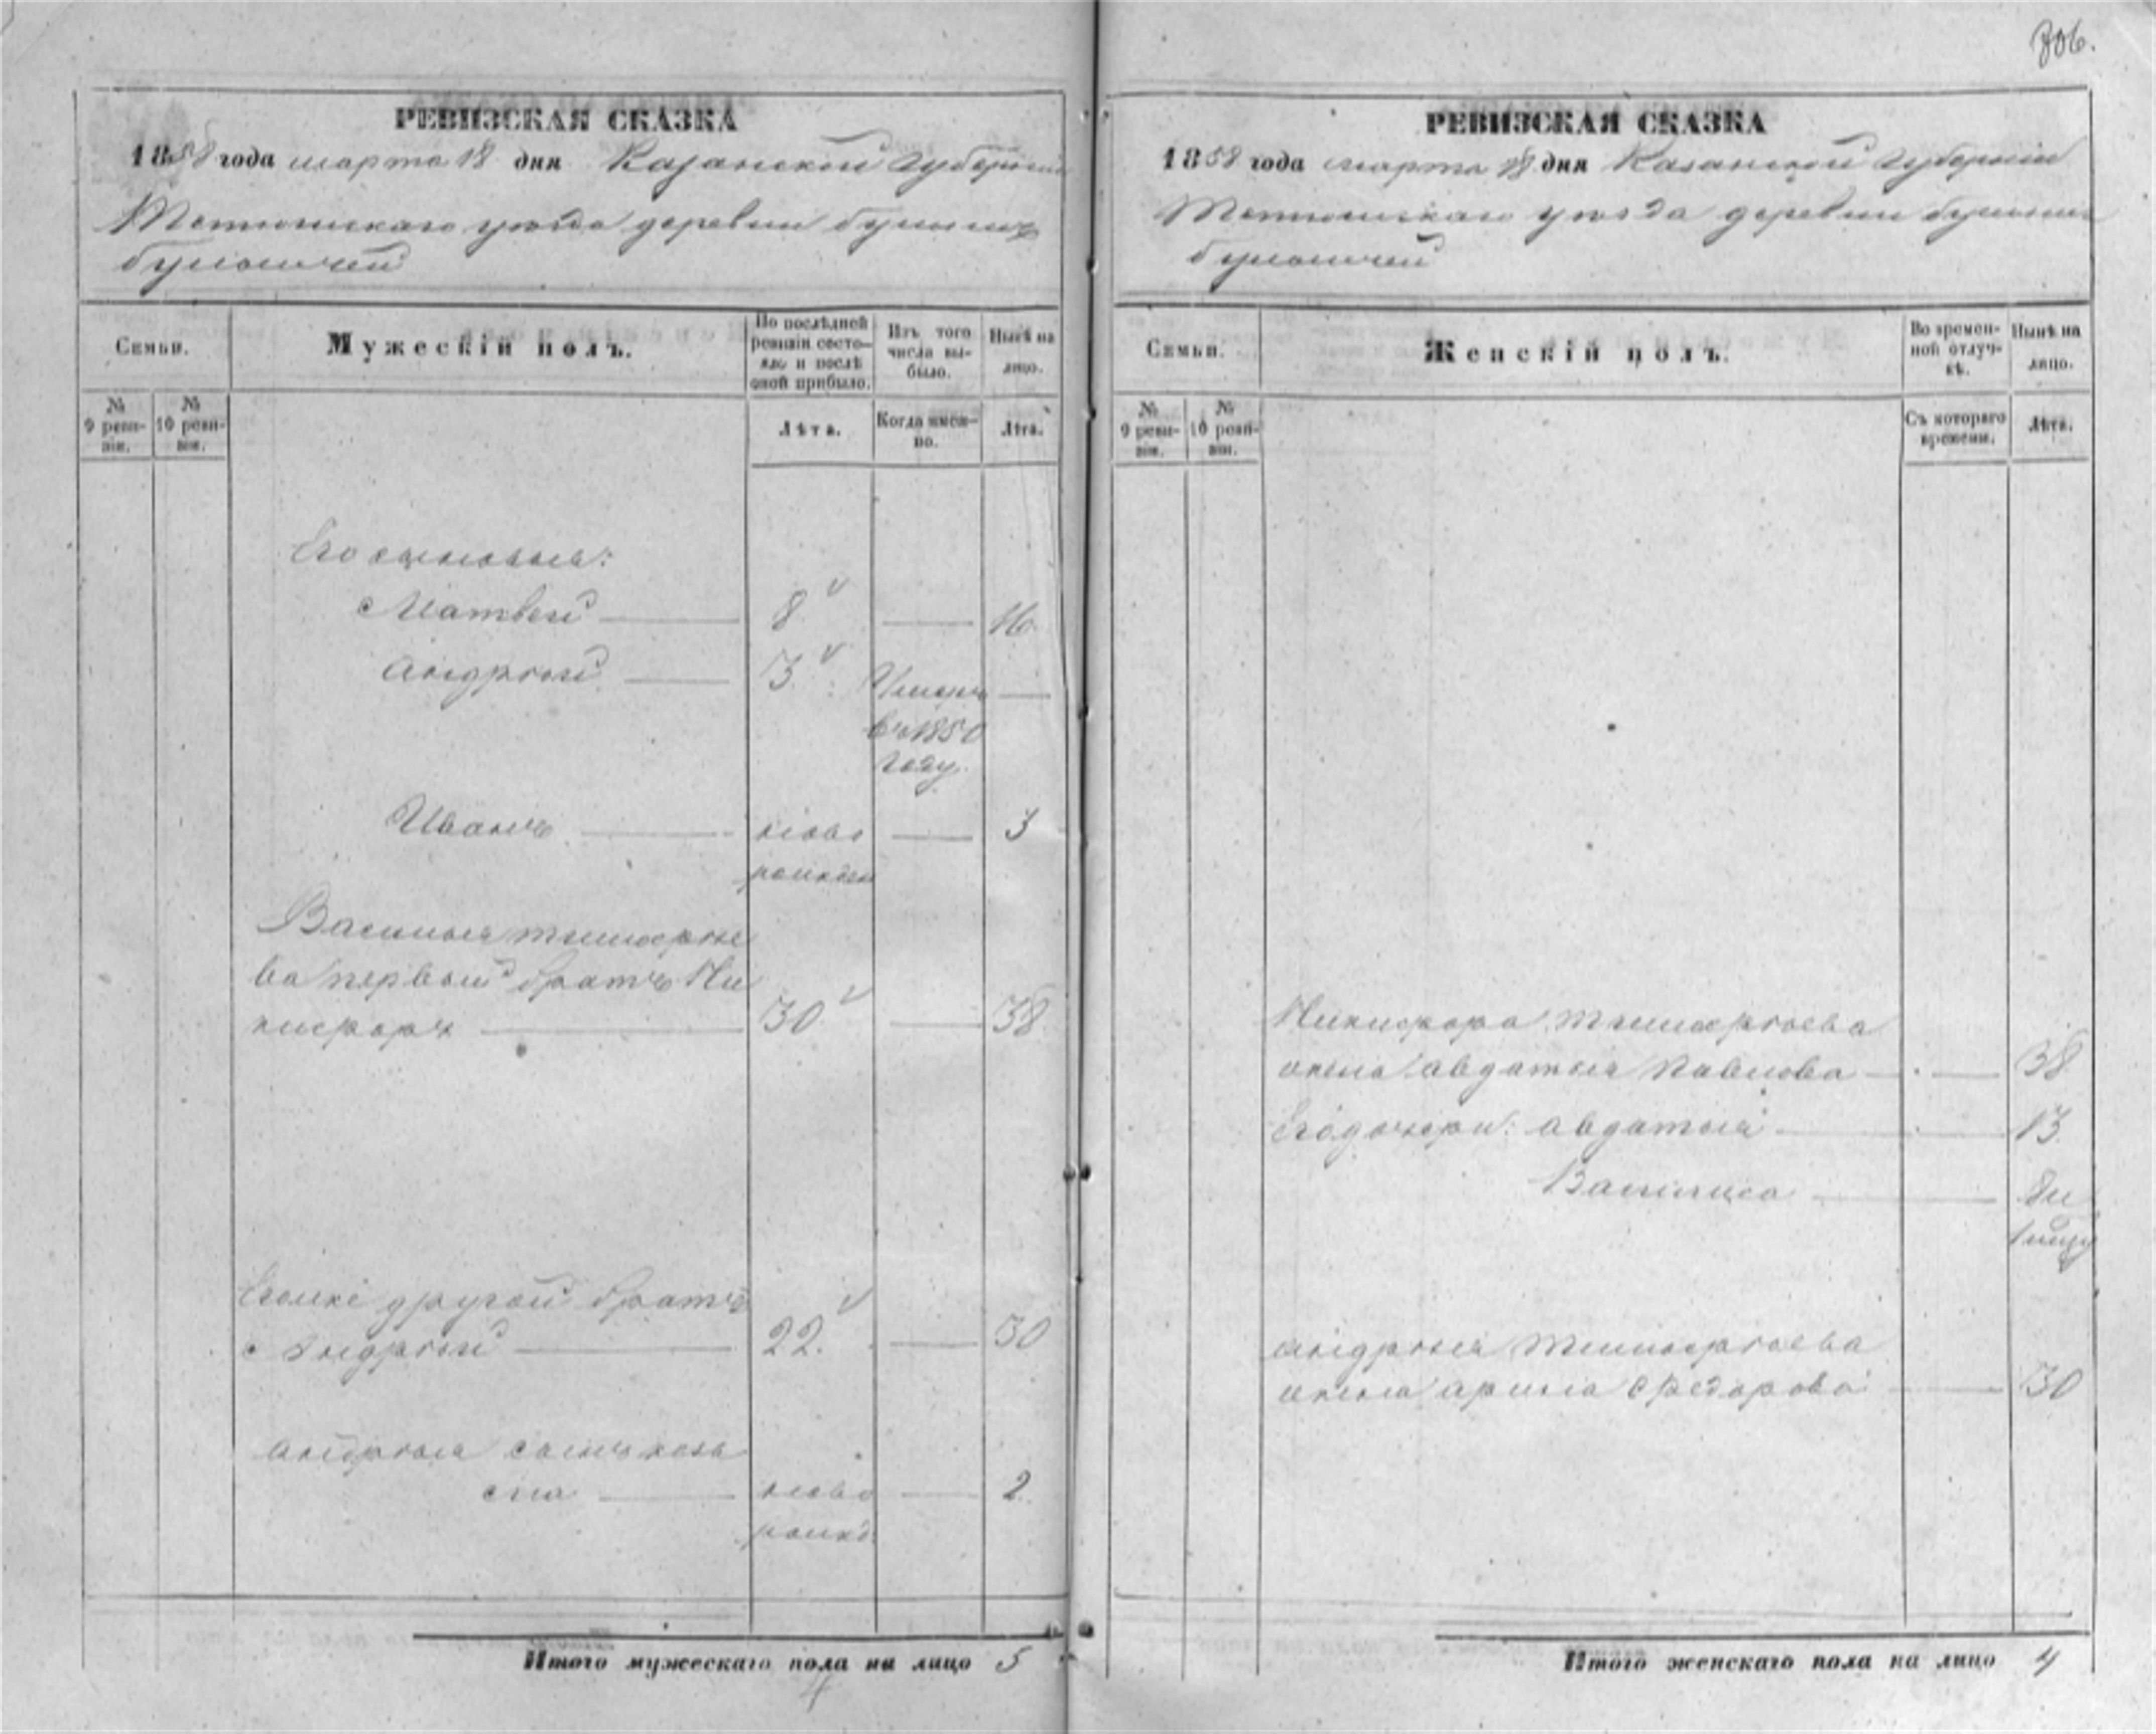 806.
РЕВИЗСКАЯ СКАЗКА
1858 года марта 18 дня Казанской губернии
Тетюшскаго уѣзда деревни
Семьи.
Мужескій полъ.
По послѣдней ревизіи состо-
яло и послѣ оной прибыло.
Изъ того числа вы-
было.
Нынѣ на лицо.
№ 9 реви-
зіи.
№ 10 реви-
зіи.
Лѣта.
Когда имен-
но.
Лѣта.
Его сыновья:
Матвей 8 16
Андрей 3 Умеръ
въ 1850
году.
Иванъ ново 3
рожден
Василья Тимофѣе
ва первый братъ Ни
кифоръ 30 38
Его же другой братъ
Андрей 22. 30
Андрея сынъ Козь
ма ново 2
рожд.
Итого мужескаго пола на лицо 5
РЕВИЗСКАЯ СКАЗКА
1858 года марта 18 дня Казанской губерніи
Тетюшскаго уѣзда деревни
Семьи.
Женскій полъ.
Во времен-
ной отлуч-
кѣ.
Нынѣ на лицо.
№ 9 реви-
зіи.
№ 10 реви-
зіи.
Съ котораго времени.
Лѣта.
Никифора Тимофѣева
жена Авдатья Павлова 38
Его дочери: Авдатья 13
Василиса
Андрея Тимофѣева
жена Арина Федорова 30
Итого женскаго пола на лицо 4